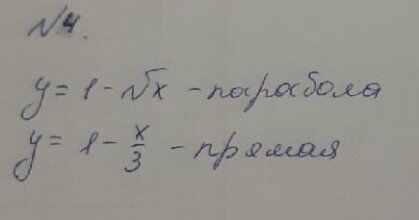 №4.
y = 1 - √x - парабола
y = 1 - x/3 - прямая